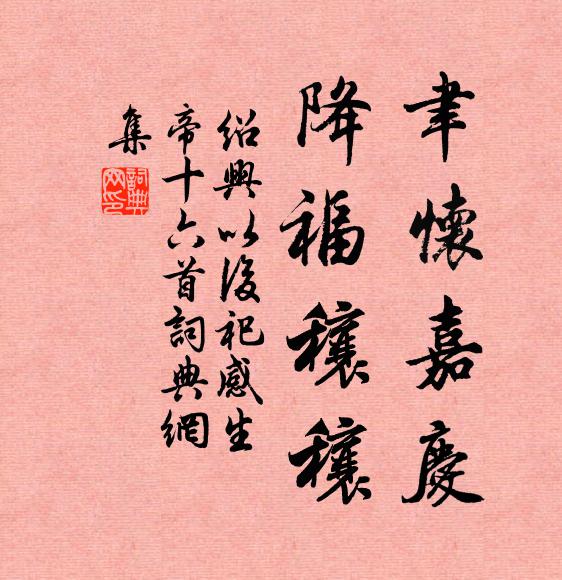 聿懷嘉慶
降福穰穰
紹興以後祀感生
帝十六首詞典網
集
詞典
网印